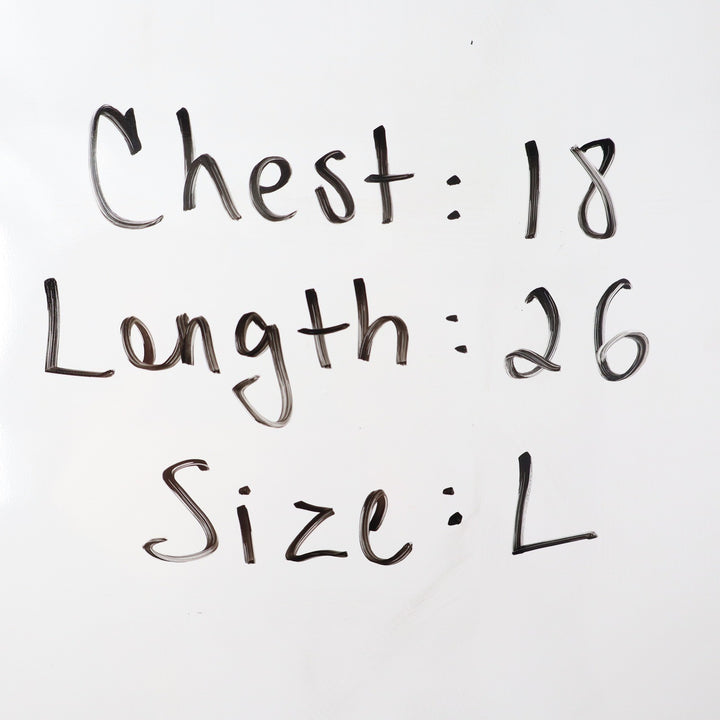 Chest: 18
Length: 26
Size: L